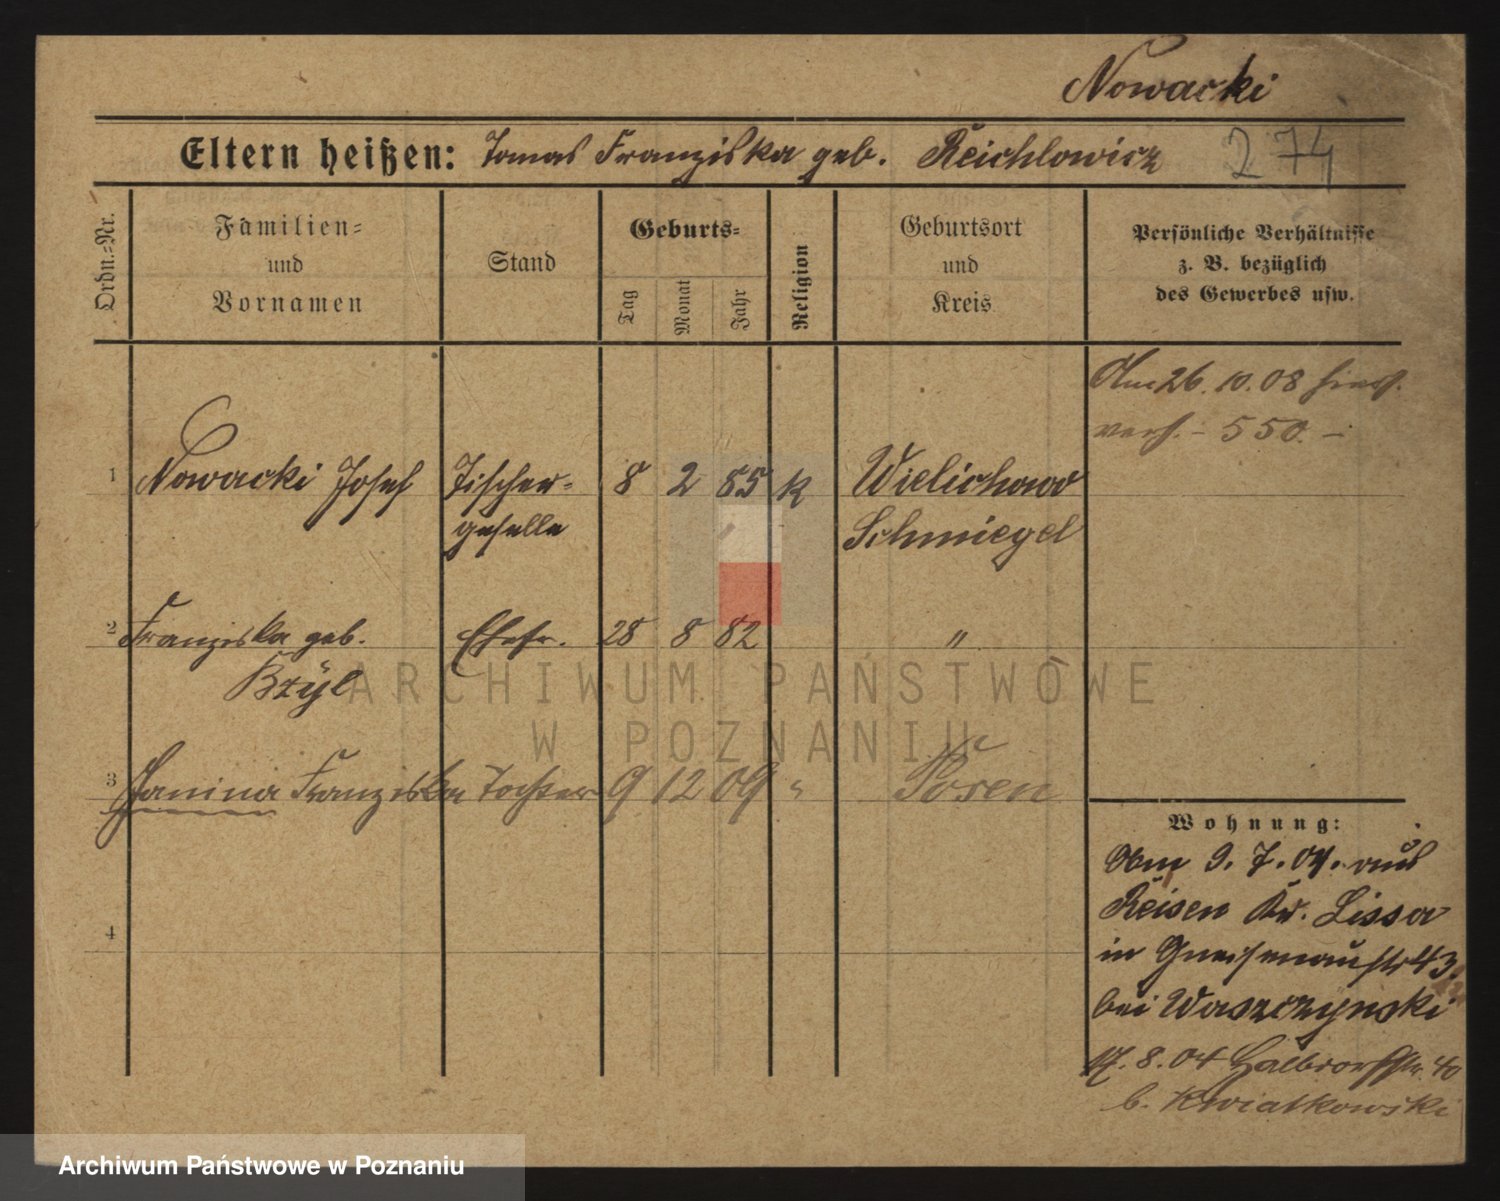 Nowacki
Eltern heißen: Tomas Franziska geb. Reichlowicz 274
Ordn.=Nr.
Familien=
und
Vornamen
Stand
Geburts=
Tag
Monat
Jahr
Religion
Geburtsort
und
Kreis
Persönliche Verhältnisse
z. B. bezüglich
des Gewerbes usw.
Am 26. 10. 08
verh. - 550. -
1 Nowacki Josef Tischer= 8 2 85 K Wielichowo
geselle Schmiegel
2 Franziska geb. Ehefr. 28 8 82 "
Bzÿl
3 Janina Franziska Tochter 9 12 09 " Posen
4
Wohnung:
Am 9. 7. 04. aus
Reisen Kr. Lissa
in Gneisenaustr 43.
bei Waszczynski
17. 8. 04 40
b. Kwiatkowski
ARCHIWUM PAŃSTWOWE
W POZNANIU
Archiwum Państwowe w Poznaniu